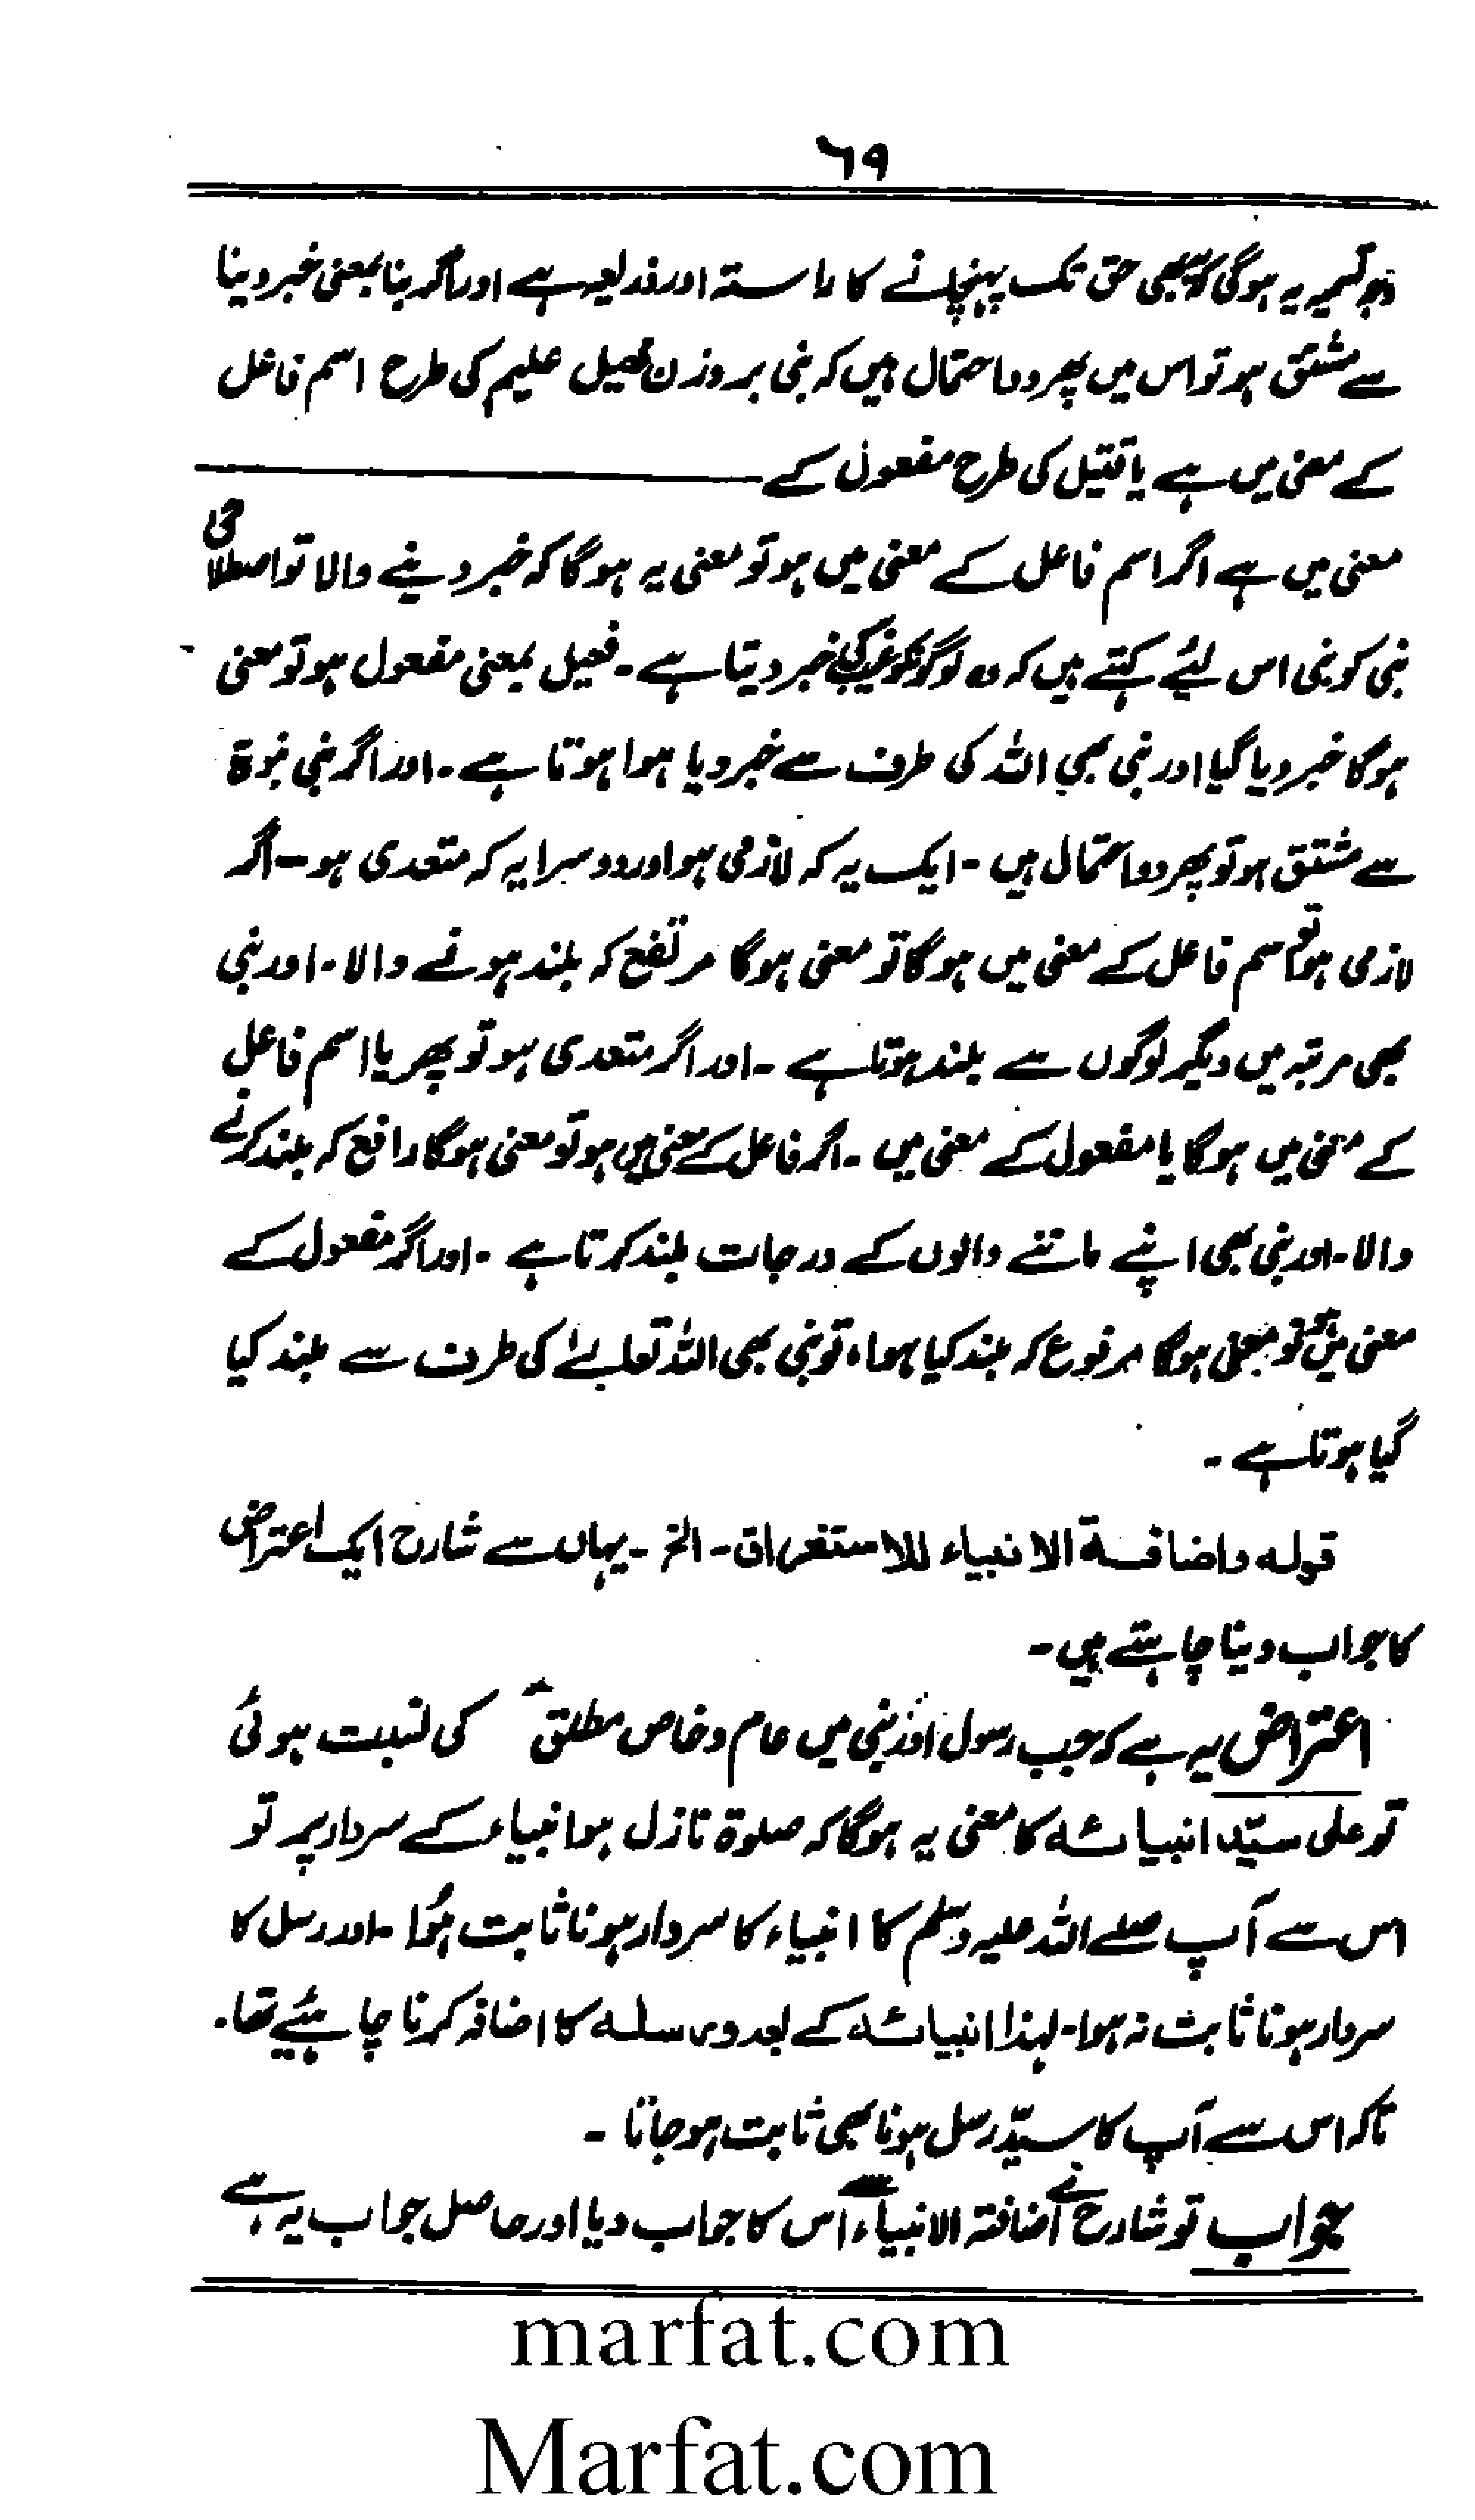 ٦٩
وجہ تسمیہ یہ ہوگی کہ نبی بھی حق تک پہنچانے کا راستہ اور ذریعہ ہے اور اگر بنا بمعنی خبر دینا
سے مشتق ہو تو اس میں پھر دو احتمال ہیں کہ نبی بروزن فعیل علیم کی طرح اسم فاعل
کے معنی میں ہے یا قتیل کی طرح مفعول کے
معنی میں ہے اگر اسم فاعل کے معنی میں ہو تو معنی یہ ہوگا کہ خبر دینے والا تو اصطلاحی
نبی کو نبی اس لئے کہتے ہیں کہ وہ لوگوں کو غیب کی خبر دیتا ہے ۔ فعیل بمعنی مفعول ہو تو معنی
ہوگا خبر دیا گیا اور نبی بھی اللہ کی طرف سے خبر دیا ہوا ہوتا ہے ۔ اور اگر نبی نبوۃ
سے مشتق ہو تو پھر دو احتمال ہیں ۔ ایک یہ کہ لازمی ہو اور دوسرا یہ کہ متعدی ہو ۔ اگر
لازمی ہو تو اسم فاعل کے معنی میں ہوگا تو معنی ہوگا مرتفع کہ بلند ہونے والا ۔ اور نبی
بھی مرتبہ میں دیگر لوگوں سے بلند ہوتا ہے ۔ اور اگر متعدی ہو تو پھر یا اسم فاعل
کے معنی میں ہوگا یا مفعول کے معنی میں ۔ اگر فاعل کے معنی میں ہو تو معنی ہوگا رافع کہ بلند کرنے
والا ۔ اور نبی بھی اپنے ماننے والوں کے درجات بلند کرتا ہے ۔ اور اگر مفعول کے
معنی میں ہو تو معنی ہوگا مرفوع کہ بلند کیا ہوا، تو نبی بھی اللہ تعالےٰ کی طرف سے بلند کیا
گیا ہوتا ہے ۔
قولہ واضافۃ الانبیاء للاستغراق ۔ الخ ۔ یہاں سے شارح ایک اعتراض
کا جواب دینا چاہتے ہیں ۔
اعتراض یہ ہے کہ جب رسول اور نبی میں عام و خاص مطلق کی نسبت ہوئی
تو علی سیّد انبیائہ کا معنی یہ ہوگا کہ صلوۃ نازل ہو انبیاء کے سردار پر تو
اس سے آپ صلے اللہ علیہ وسلم کا انبیاء کا سردار ہونا ثابت ہُوا ۔ اور رسل کا
سردار ہونا ثابت نہ ہوا ۔ لہذا انبیائہ کے بعد ورسلہ کا اضافہ کرنا چاہئیے تھا ۔
تاکہ اس سے آپ کا سیّد رسل ہونا بھی ثابت ہو جاتا ۔
جواب تو شارح نے اضافتہ الانبیاء سے اس کا جواب دیا اور حاصل جواب یہ ہے
marfat.com
Marfat.com